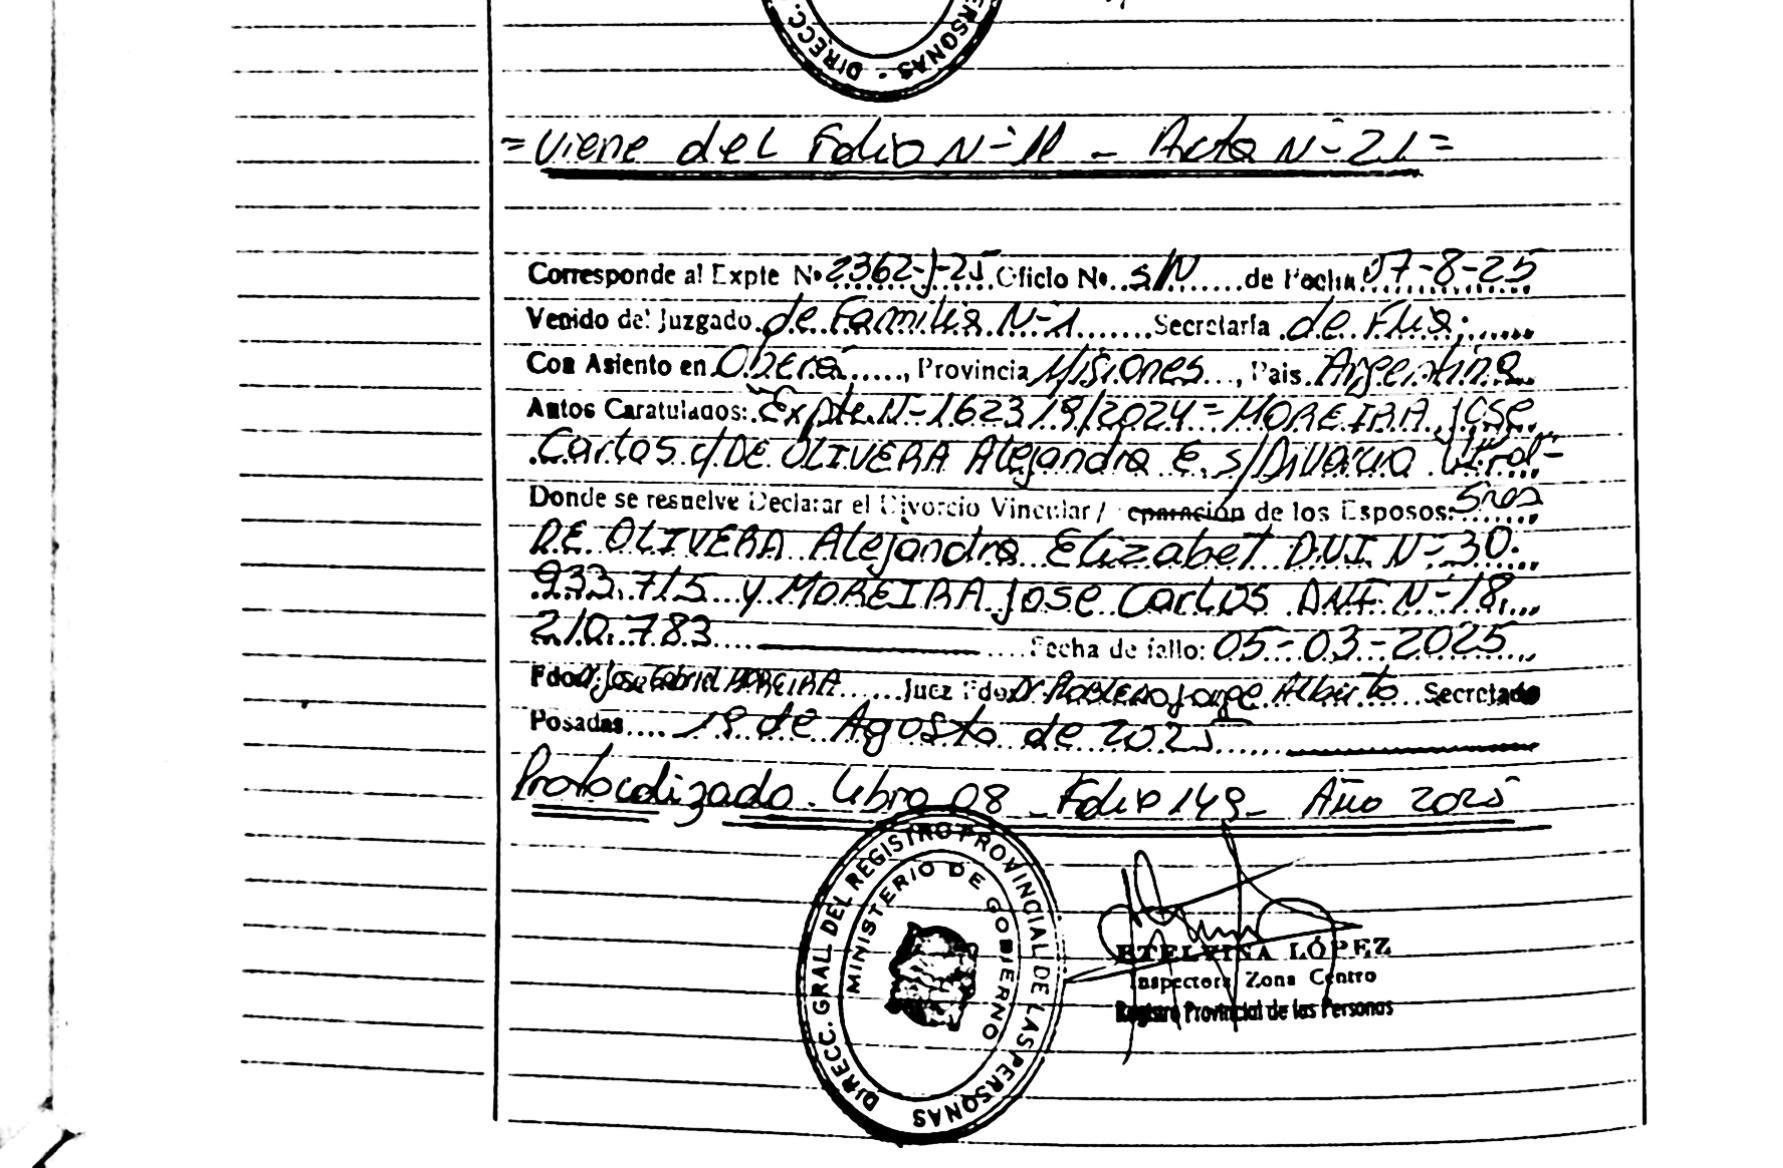 DIRECC. PERSONAS
=Viene del Folio N-11 - Acta N-21=
Corresponde al Expte Nº 2362-J-25 Oficio Nº S/N de Fecha 07-8-25
Venido del Juzgado de Familia N-1 Secretaría de Flia.
Con Asiento en Oberá, Provincia Misiones, Pais Argentina
Autos Caratulados: Expte.N-162319/2024=MOREIRA Jose
Carlos c/DE OLIVERA Alejandra E. s/Divorcio
Donde se resuelve Declarar el Divorcio Vincular/ eparación de los Esposos: Sres
DE OLIVERA Alejandra Elizabet D.N.I N-30.
933.715 y MOREIRA Jose Carlos DNI N-18.
210.783 Fecha de fallo: 05-03-2025
Fdo Dr. Jose Gabriel MOREIRA Juez Fdo Dr. Jorge Alberto Secretario
Posadas 19 de Agosto de 2025
Protocolizado - Libro 08 - Folio 149 - Año 2025
DIRECC. GRAL. DEL REGISTRO PROVINCIAL DE LAS PERSONAS
MINISTERIO DE GOBIERNO
ETELVINA LÓPEZ
Inspectora Zona Centro
Registro Provincial de las Personas